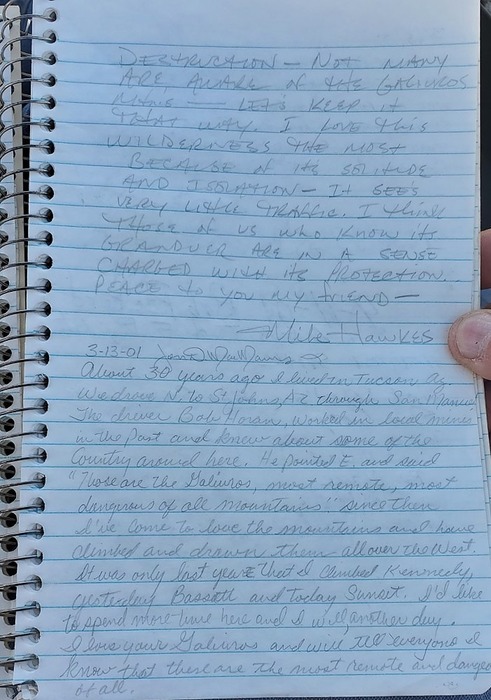 DESTRUCTION — NOT MANY
ARE AWARE OF THE GALIUROS
— LETS KEEP IT
THAT WAY. I LOVE THIS
WILDERNESS THE MOST
BECAUSE OF ITS SOLITUDE
AND ISOLATION — IT SEE'S
VERY LITTLE TRAFFIC. I THINK
THOSE OF US WHO KNOW ITS
GRANDUER ARE IN A SENSE
CHARGED WITH ITS PROTECTION.
PEACE TO YOU MY FRIEND —
Mike HAWKES
3-13-01
About 30 years ago I lived in Tucson Az.
We drove N. to St Johns, AZ through San Manuel
The driver Bob Horan, worked in local mines
in the Past and knew about some of the
Country around here. He pointed E, and said
"Those are the Galiuros, most remote, most
dangerous of all mountains" since then
I've come to love the mountains and have
climbed and drawn them all over the West.
It was only last year that I climbed Kennedy,
yesterday Bassett and today Sunset. I'd like
to spend more time here and I will another day.
I love your Galiuros and will tell everyone I
know that these are the most remote and danger
of all.